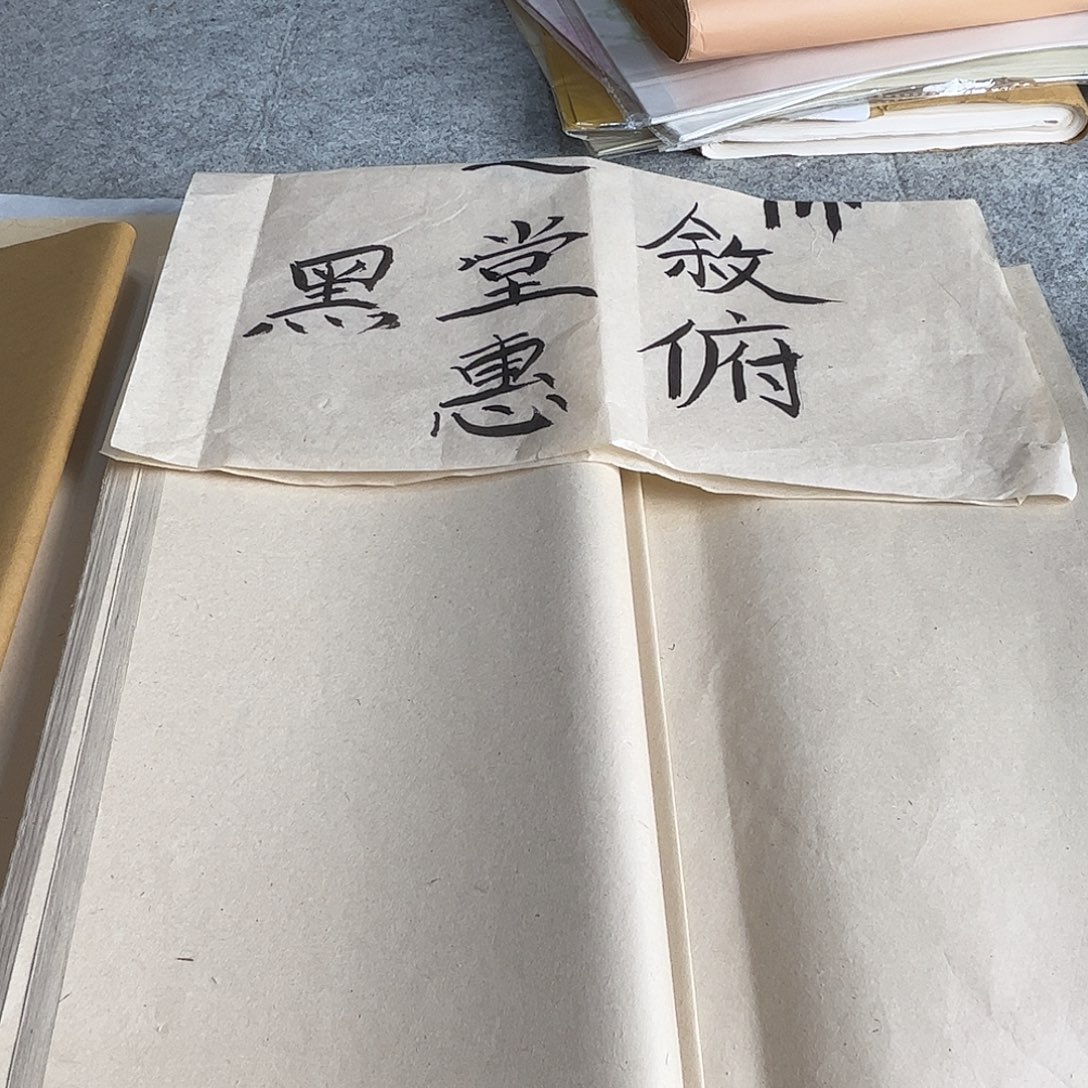 敘俯
堂惠
黑